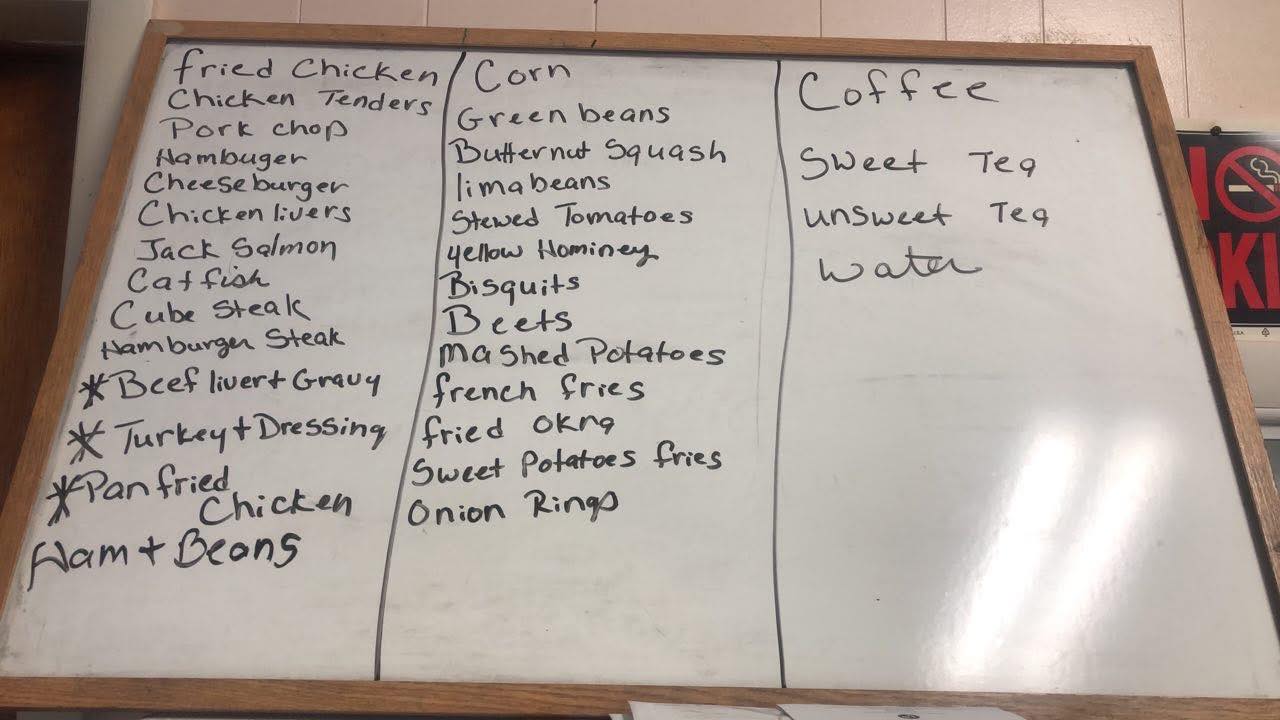 fried Chicken
Chicken Tenders
Pork chop
Hambuger
Cheeseburger
Chicken livers
Jack Salmon
Catfish
Cube Steak
Hamburger Steak
* Beef liver + Gravy
* Turkey + Dressing
* Pan fried
Chicken
Ham + Beans
Corn
Green beans
Butternut Squash
lima beans
Stewed Tomatoes
yellow Hominey
Bisquits
Beets
mashed Potatoes
french fries
fried okra
Sweet Potatoes fries
Onion Rings
Coffee
Sweet Tea
unsweet Tea
water